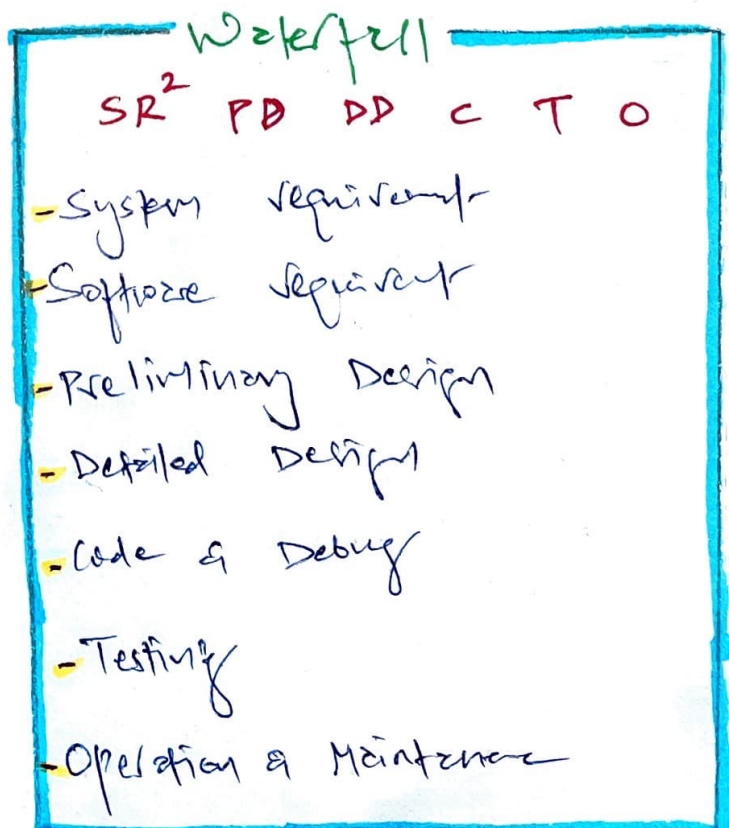 Waterfall
SR² PD DD C T O
- System requirement
- Software requirement
- Preliminary Design
- Detailed Design
- Code & Debug
- Testing
- Operation & Maintenance